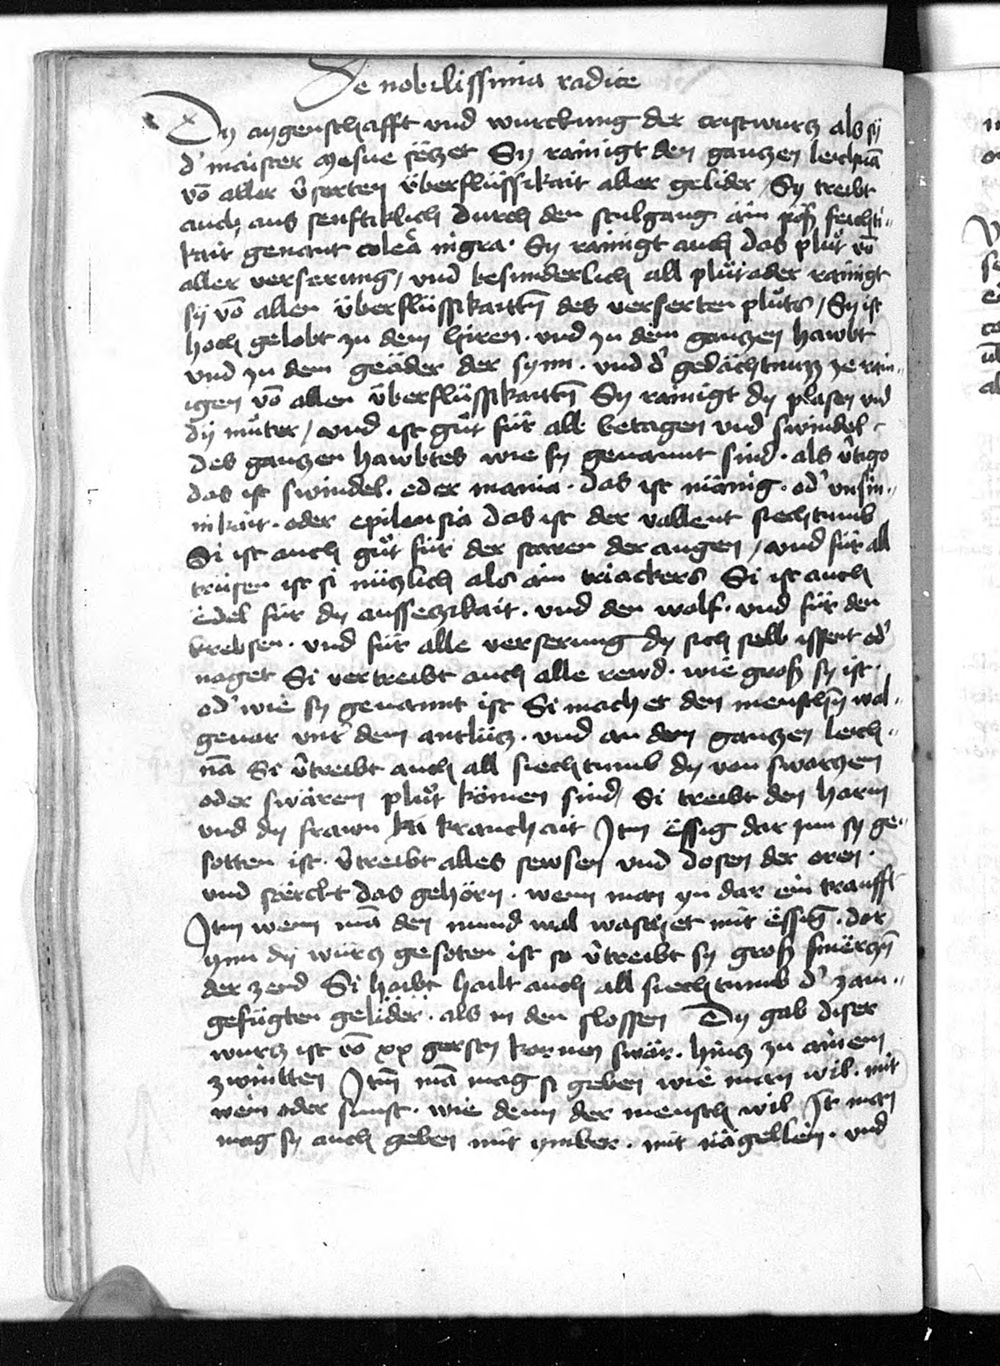 De nobilissima radice
Dy aygenschafft und wurckung der cristwurcz als sy
d' maister Mesue seczet Sy rainigt den ganczen leichnā
vō aller v̄serten überflüssikait aller gelider / Sy treibt
auch aus senftiklich durch den stulgang ain poß feichti-
kait genant colera nigra · Sy rainigt auch das plůt vō
aller verserung / und besunderlich all plůtader rainigt
sy vō allen überflüssikaittn̄ des verserten plůtes / Sy ist
hoch gelobt zu dem hiren · und zu dem ganczen hawbt
und zu dem geäder der synn · und d' gedächtnuzz ze rain-
igen vō allen überflüssikaittn̄ Sy rainigt dy plasen und
dy můter / und ist gůt für all betagen und swindel
des ganczen hawbtes wie sy genannt sind · als v̄tigo
das ist swindel · oder mania · das ist mänig · od' unsin-
nikait · oder epilensia das ist der vallent siechtumb
Si ist auch gůt für der staren der augen / und für all
trüsen ist si nüczlich als ain triackers Si ist auch
edel für dy aussetzikait · und den wolf · und für den
krebsen · und für alle verserung dy sich selb issent od'
naget Si vertreibt auch alle rewd · wie groß sy ist ·
od' wie sy genannt ist Si machet den menschn̄ wol-
gevar unt' dem antlücz · und an dem ganczen leich-
nā Si v̄treibt auch all siechtumb dy von swarczen
oder swären plůt kömen sind / Si treibt den harm
und dy frawn kranchait Itm̄ essig dar inn sy ge-
sotten ist · v̄treibt alles sewsen und dosen der oren ·
und sterckt das gehörn · wenn man yn dar ein traufft
Itm̄ wenn mā den mund wol waschet mit essig · dar
ynn dy wurcz gesoten ist so v̄treibt sy groß smerczn̄
der zend Si hailt auch all siechtumb d' zam-
gefügten gelider · als in den slossen Dy gab diser
wurcz ist vō xx gersten kornen swär · hincz zu ainem
zwintten Itm̄ mā mag si geben wie man wil · mit
wein oder sunst · wie denn der mensch wil It man
mag sy auch geben mit ymber · mit nägellein · und